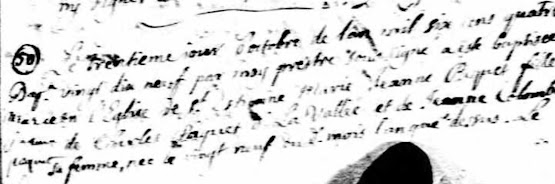 50 Le trentieme jour d'octobre de l'an mil six cens quatre
Bap. vingt dix neuf par moy prestre soussigne a este baptisee
en l'Eglise de St Estienne Marie Jeanne Paquet fille
de Charles Paquet de La Vallée et de Jeanne Colombe
paquet sa femme, nee le vingt neuf du mois l'an que dessus. Le